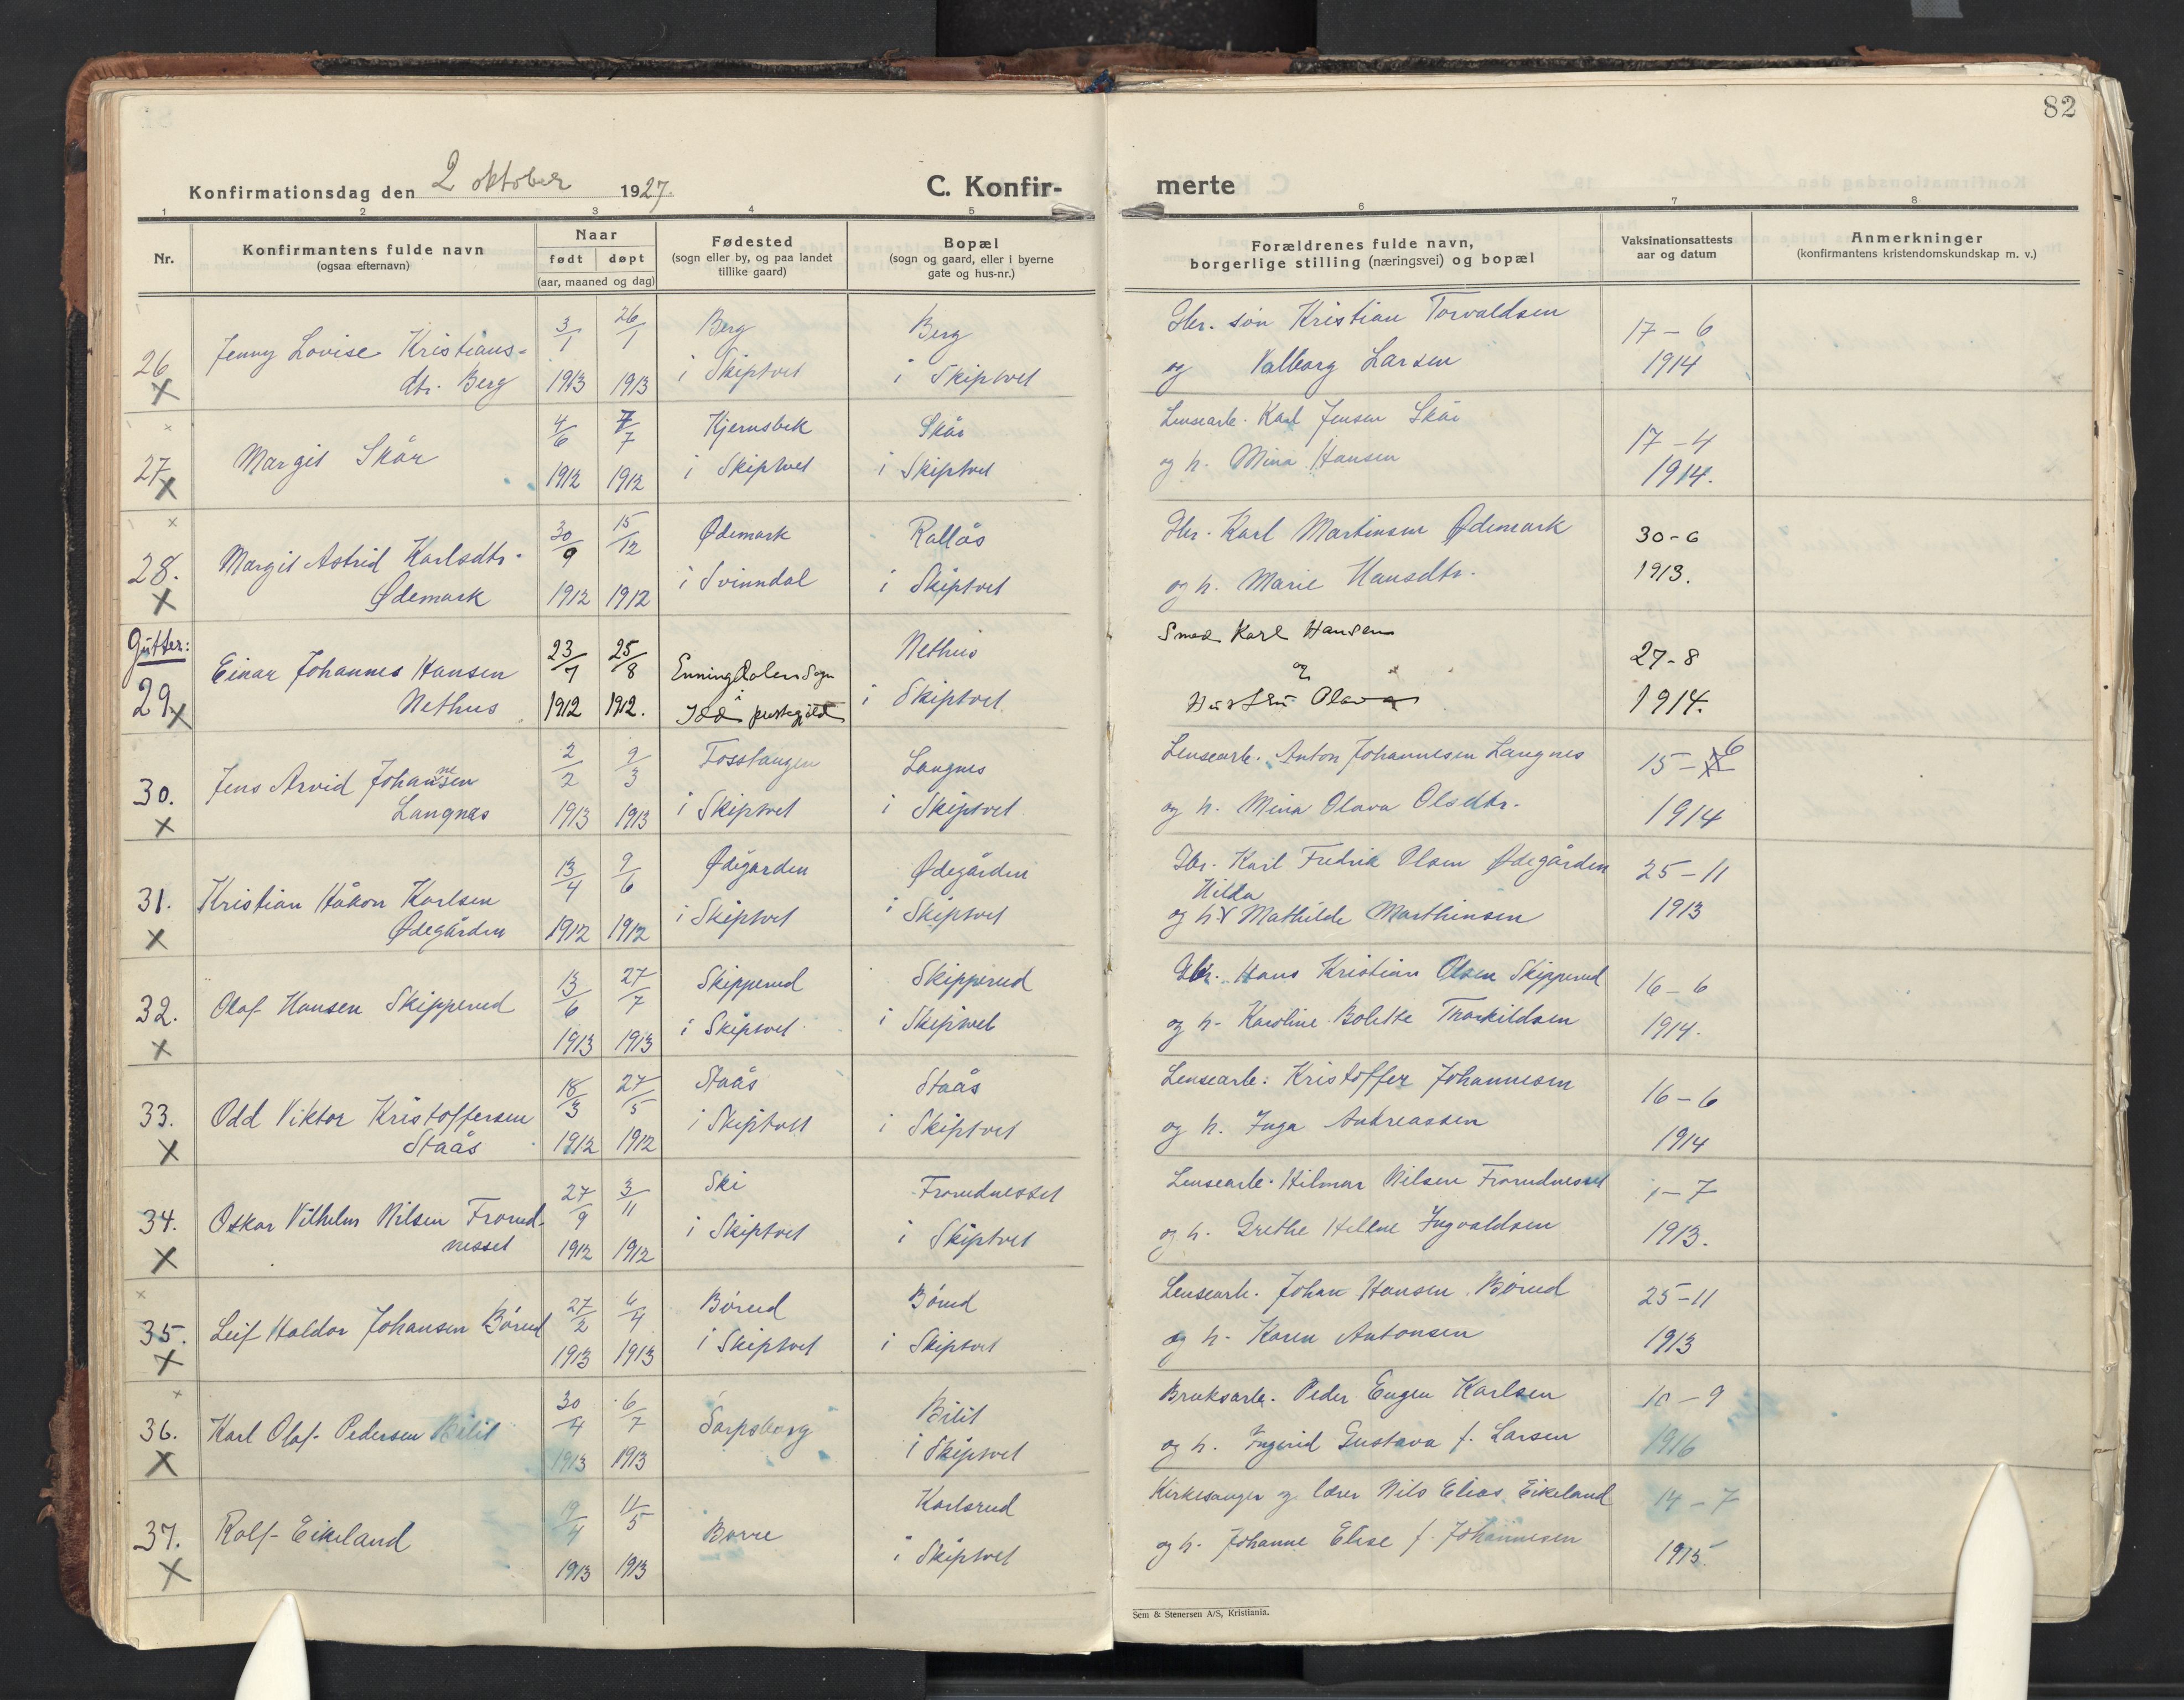 82
Konfirmationsdag den 2 oktober 1927.
C. Konfirmerte
1 2 3 4 5 6 7 8
Nr.
Konfirmantens fulde navn
(ogsaa efternavn)
Naar
født døpt
(aar, maaned og dag)
Fødested
(sogn eller by, og paa landet
tillike gaard)
Bopæl
(sogn og gaard, eller i byerne
gate og hus-nr.)
Forældrenes fulde navn,
borgerlige stilling (næringsvei) og bopæl
Vaksinationsattests
aar og datum
Anmerkninger
(konfirmantens kristendomskundskap m. v.)
26 X Jenny Lovise Kristians-
dtr. Berg
3/1 1913 26/1 1913
Berg
i Skiptvet
Berg
i Skiptvet
Gbr. søn Kristian Torvaldsen
og Valborg Larsen
17 - 6
1914
27 X Margit Skår
4/6 1912 7/7 1912
Kjernsbek
i Skiptvet
Skår
i Skiptvet
Lensearb. Karl Jensen Skår
og h. Mina Hansen
17 - 4
1914.
28. X Margit Astrid Karlsdtr.
Ødemark
30/9 1912 15/12 1912
Ødemark
i Svinndal
Rallås
i Skiptvet
Gbr. Karl Martinsen Ødemark
og h. Marie Hansdtr.
30 - 6
1913.
Gutter:
29 X Einar Johannes Hansen
Nethus
23/7 1912 25/8 1912.
Enningdalens Sogn
i
Idd prestegjeld
Nethus
i Skiptvet
Smed Karl Hansen
og
Hustru Olava
27 - 8
1914.
30. X Jens Arvid Johannesen
Langnes
2/2 1913 9/3 1913
Fosstangen
i Skiptvet
Langnes
i Skiptvet
Lensearb. Anton Johannesen Langnes
og h. Mina Olava Olsdtr.
15 - 6
1914
31. X Kristian Håkon Karlsen
Ødegården
13/4 1912 9/6 1912
Ødegården
i Skiptvet
Ødegården
i Skiptvet
Gbr. Karl Fredrik Olsen Ødegården
Hilda
og h. Mathilde Marthinsen
25 - 11
1913
32. X Olaf Hansen Skipperud
13/6 1913 27/7 1913
Skipperud
i Skiptvet
Skipperud
i Skiptvet
Gbr. Hans Kristian Olsen Skipperud
og h. Karoline Bolette Torkildsen
16 - 6
1914.
33. X Odd Viktor Kristoffersen
Staås
18/3 1912 27/5 1912
Staås
i Skiptvet
Staås
i Skiptvet
Lensearb. Kristoffer Johannesen
og h. Inga Andreassen
16 - 6
1914
34. X Oskar Vilhelm Nilsen Frorud-
nesset
27/9 1912 3/11 1912
Ski
i Skiptvet
Frorudnesset
i Skiptvet
Lensearb. Hilmar Nilsen Frorudnesset
og h. Grethe Helene Ingvaldsen
1 - 7
1913.
35. X Leif Haldor Johansen Børud
27/2 1913 6/4 1913
Børud
i Skiptvet
Børud
i Skiptvet
Lensearb. Johan Hansen Børud
og h. Karen Antonsen
25 - 11
1913
36. X Karl Olaf Pedersen Bilit
30/4 1913 6/7 1913
Sarpsborg
Bilit
i Skiptvet
Bruksarb. Peder Eugen Karlsen
og h. Ingerid Gustava f. Larsen
10 - 9
1916
37. X Rolf Eikeland
19/4 1913 11/5 1913
Borre
Karlsrud
i Skiptvet
Kirkesanger og lærer Nils Elias Eikeland
og h. Johanne Elise f. Johannesen
14 - 7
1915.
Sem & Stenersen A/S, Kristiania.